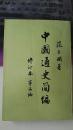 范文澜著
中國通史簡編
修订本 第三编